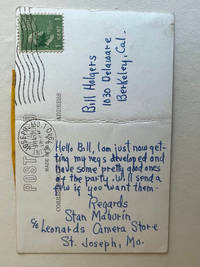 Bill Holgers
1030 Delaware
Berkeley, Cal.
POST
ADDRESS
Hello Bill, I am just now get-
ting my negs developed and
have some pretty good ones
of the party. Will send a
few if you want them.
Regards
Stan Maburin
c/o Leonards Camera Store
St. Joseph, Mo.